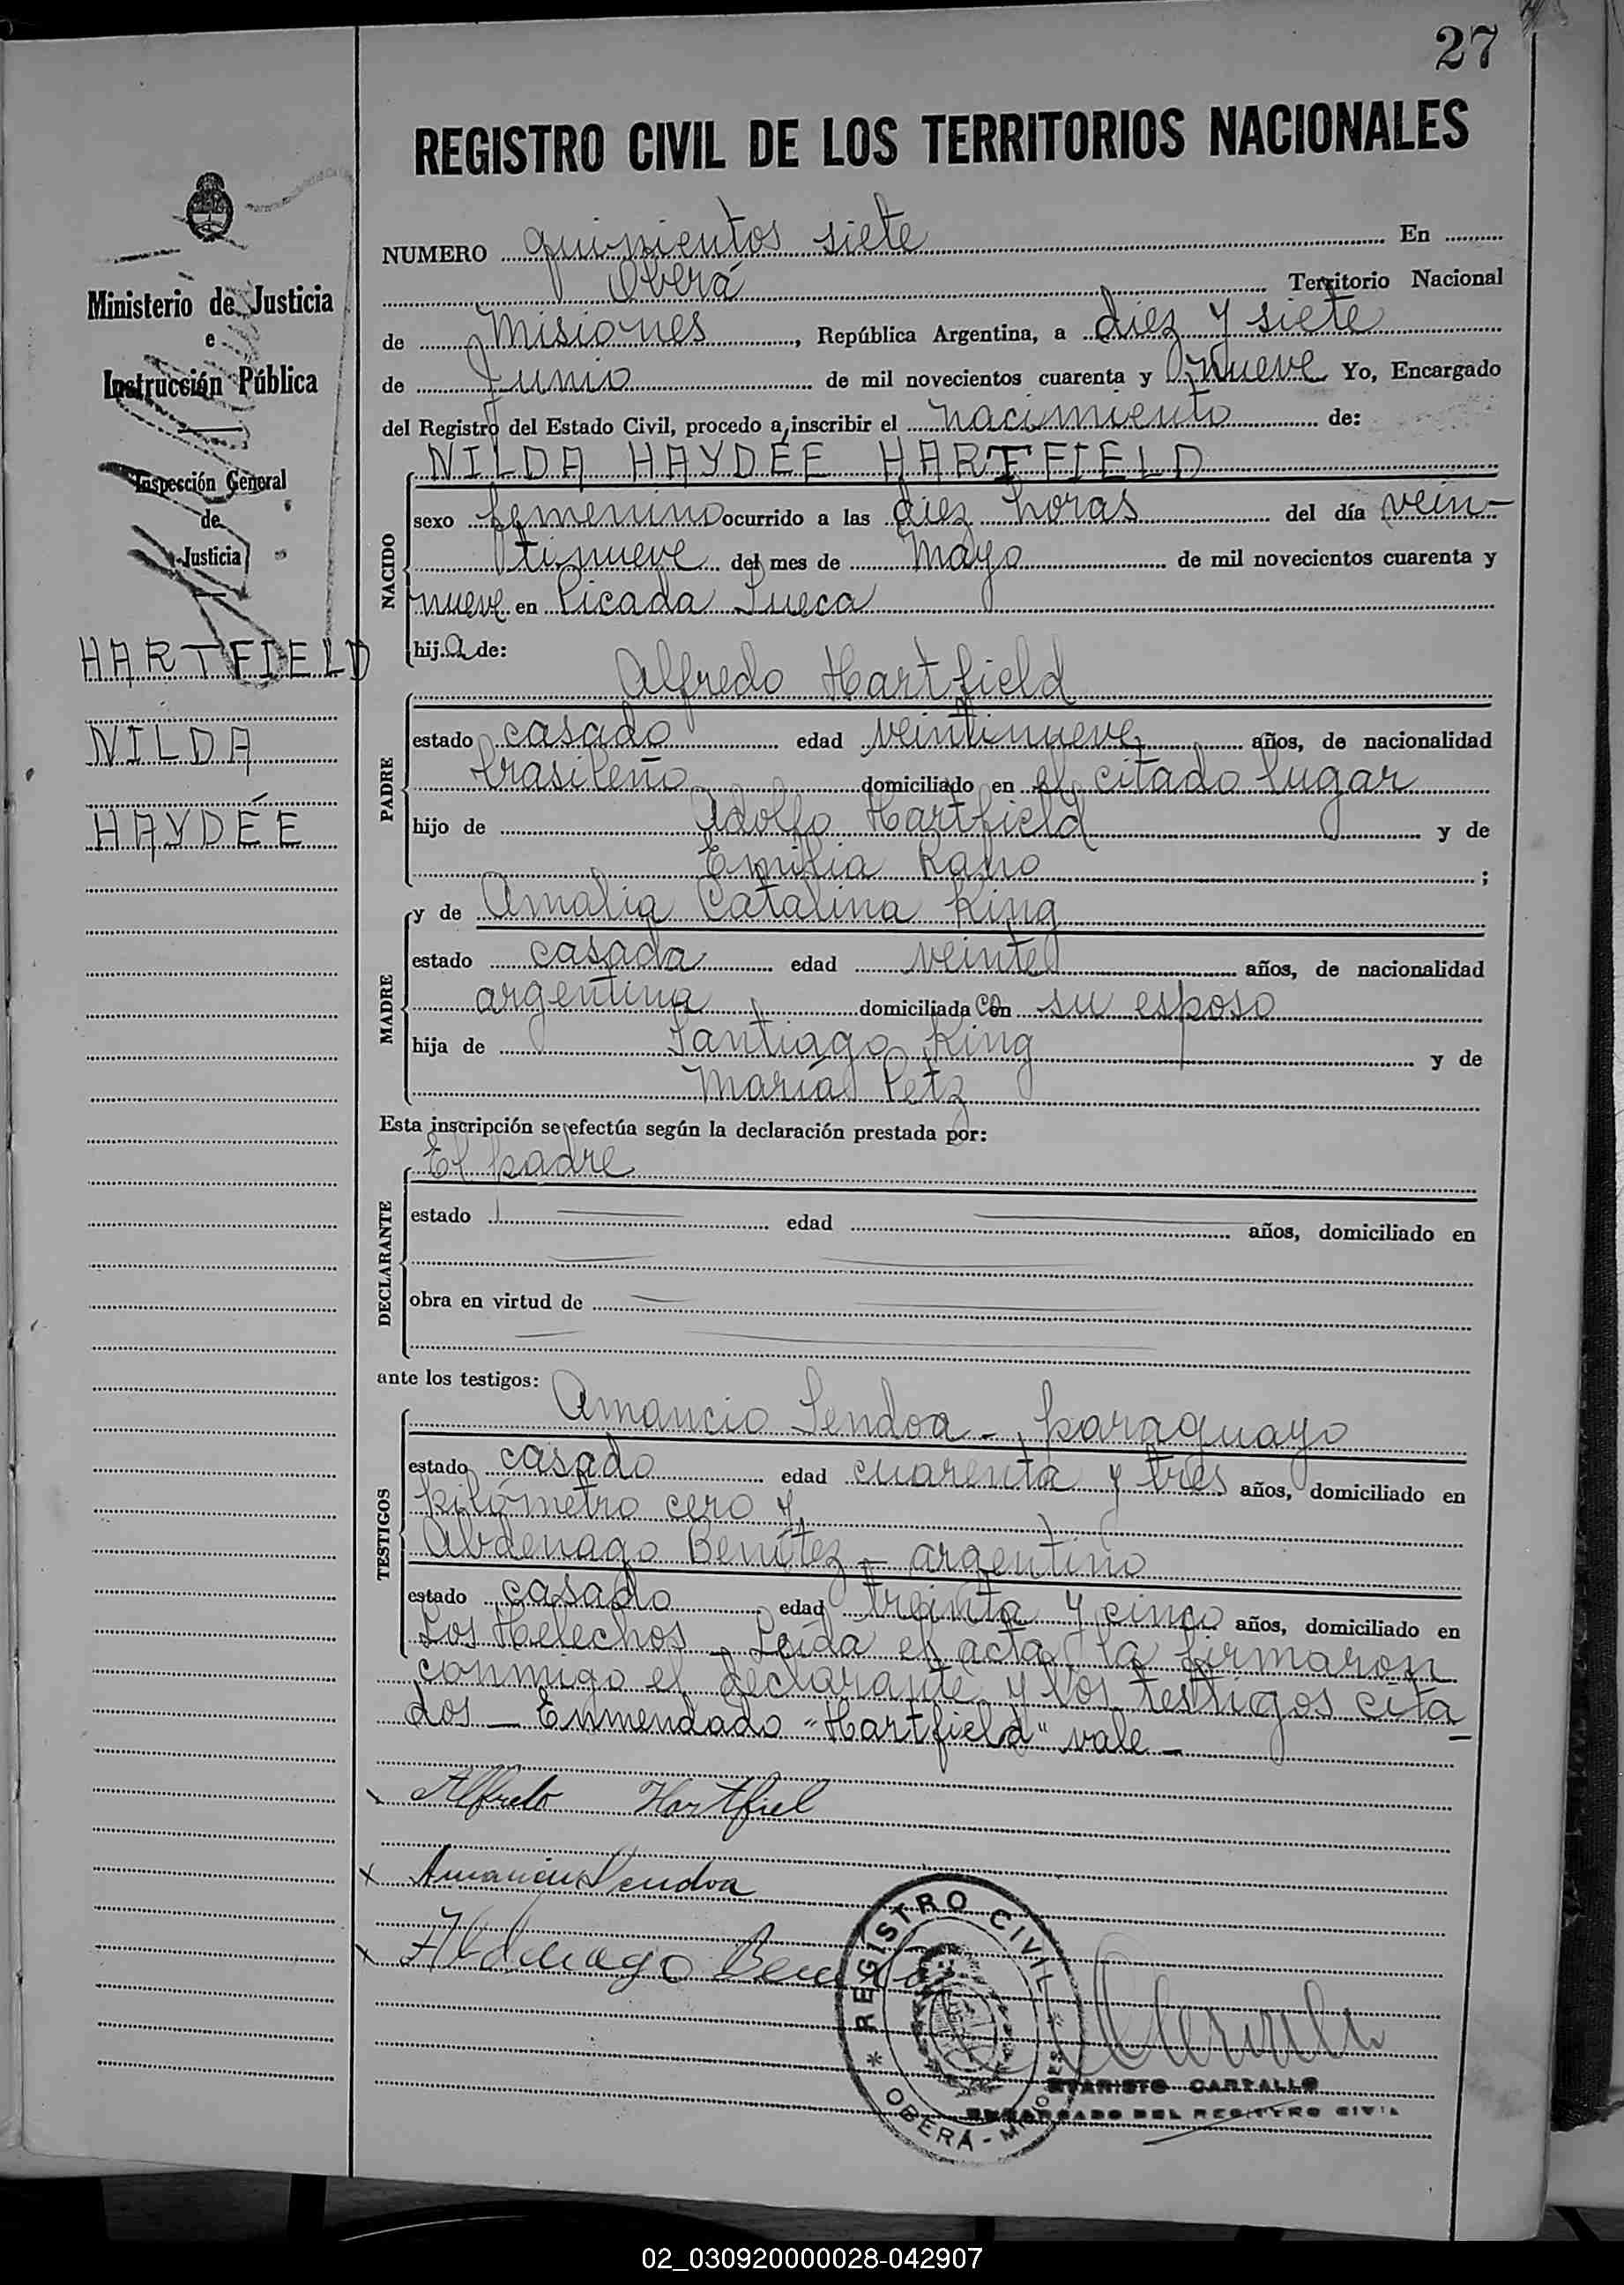 27
REGISTRO CIVIL DE LOS TERRITORIOS NACIONALES
NUMERO quinientos siete En
Oberá Territorio Nacional
de Misiones, República Argentina, a diez y siete
de Junio de mil novecientos cuarenta y nueve Yo, Encargado
del Registro del Estado Civil, procedo a inscribir el nacimiento de:
NILDA HAYDÉE HARTFIELD
NACIDO
sexo femenino ocurrido a las diez horas del día vein-
tinueve del mes de Mayo de mil novecientos cuarenta y
nueve en Picada Sueca
hija de:
Alfredo Hartfield
PADRE
estado casado edad veintinueve años, de nacionalidad
brasileño domiciliado en el citado lugar
hijo de Adolfo Hartfield y de
Emilia ;
y de Amalia Catalina King
MADRE
estado casada edad veinte años, de nacionalidad
argentina domiciliada con su esposo
hija de Santiago King y de
María Petz
Esta inscripción se efectúa según la declaración prestada por:
El padre
DECLARANTE
estado edad años, domiciliado en
obra en virtud de
ante los testigos:
Amancio Sendoa - paraguayo
TESTIGOS
estado casado edad cuarenta y tres años, domiciliado en
kilómetro cero y
Abdenago Benítez - argentino
estado casado edad treinta y cinco años, domiciliado en
Los Helechos - Leída el acta la firmaron
conmigo el declarante y los testigos cita-
dos - Enmendado "Hartfield" vale -
Alfredo Hartfiel
Amancio Sendoa
Abdenago
REGISTRO CIVIL
OBERÁ - MISIONES
ENCARGADO DEL REGISTRO CIVIL
Ministerio de Justicia
e
Instrucción Pública
Inspección General
de
Justicia
HARTFIELD
NILDA
HAYDÉE
02_030920000028-042907